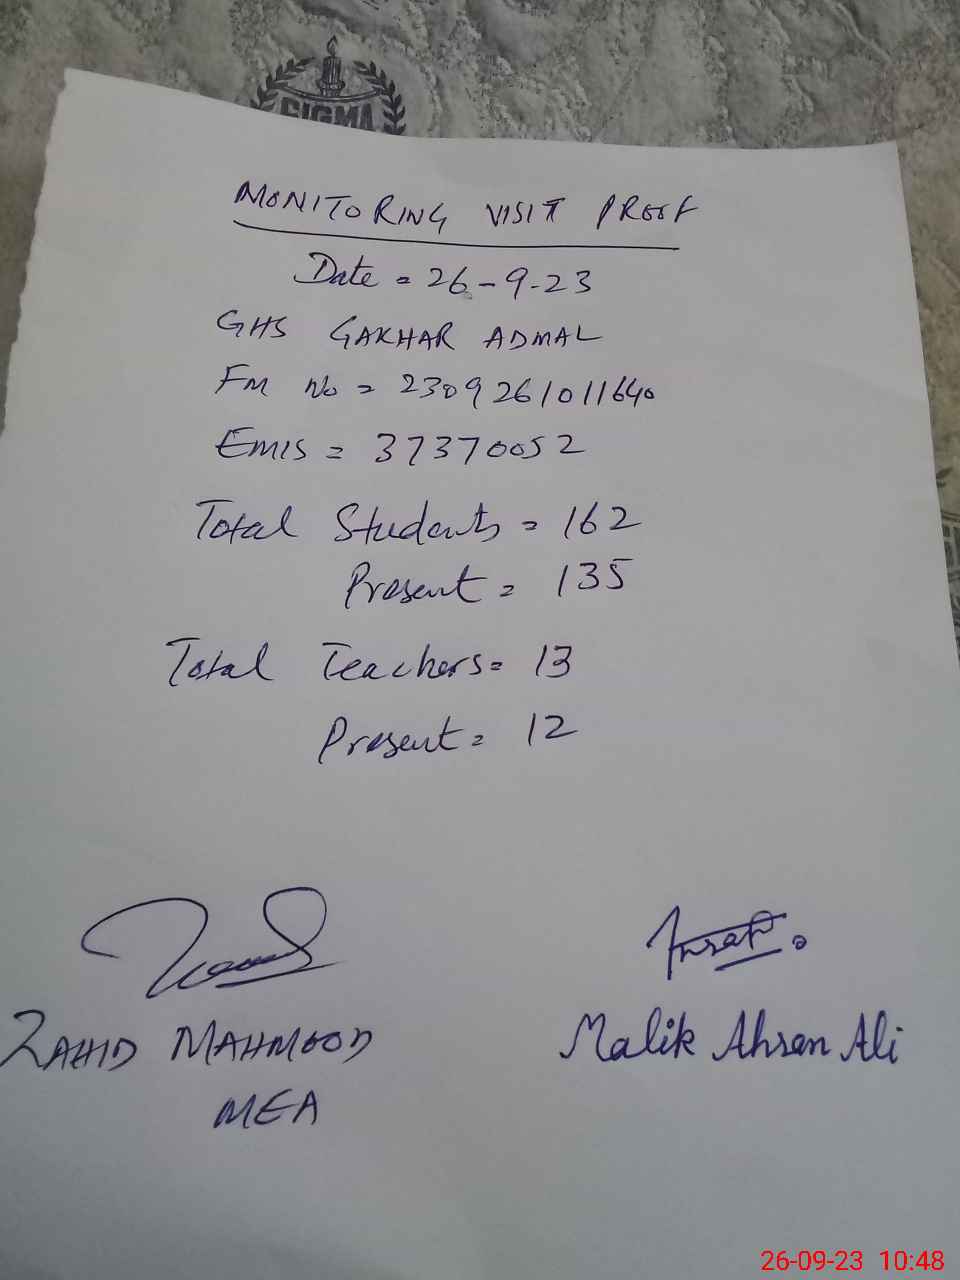 SIGMA
MONITORING VISIT PROOF
Date = 26-9-23
GHS GAKHAR ADMAL
FM No = 2309261011640
EMIS = 37370052
Total Students = 162
Present = 135
Total Teachers = 13
Present = 12
ZAHID MAHMOOD
Malik Ahsan Ali
MEA
26-09-23 10:48